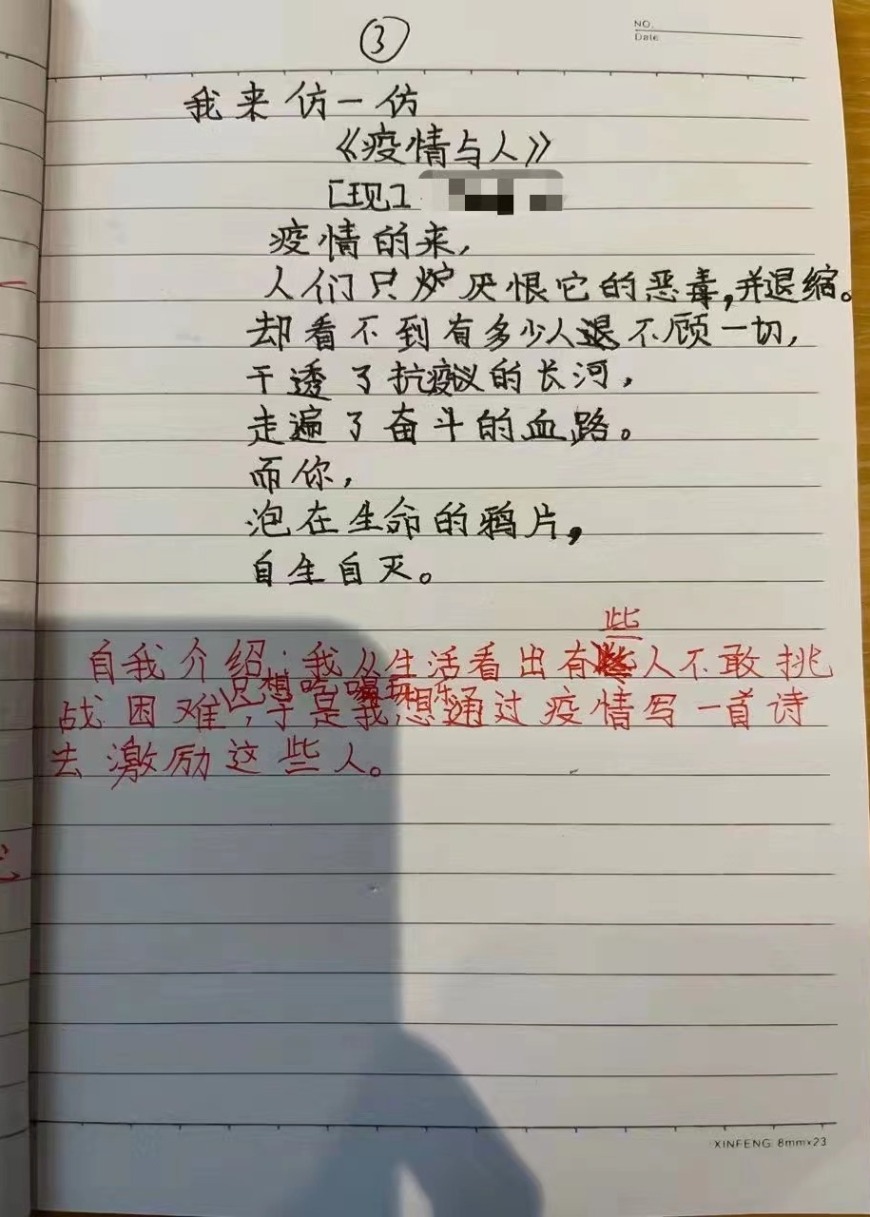 ③
NO.
Date
我来仿一仿
《疫情与人》
[现]
疫情的来,
人们只妒厌恨它的恶毒,并退缩。
却看不到有多少人退不顾一切,
干透了抗疫议的长河,
走遍了奋斗的血路。
而你,
泡在生命的鸦片,
自生自灭。
些
自我介绍:我从生活看出有人不敢挑
只想吃喝玩乐
战困难,于是我想通过疫情写一首诗
去激励这些人。
XINFENG 8mm×23